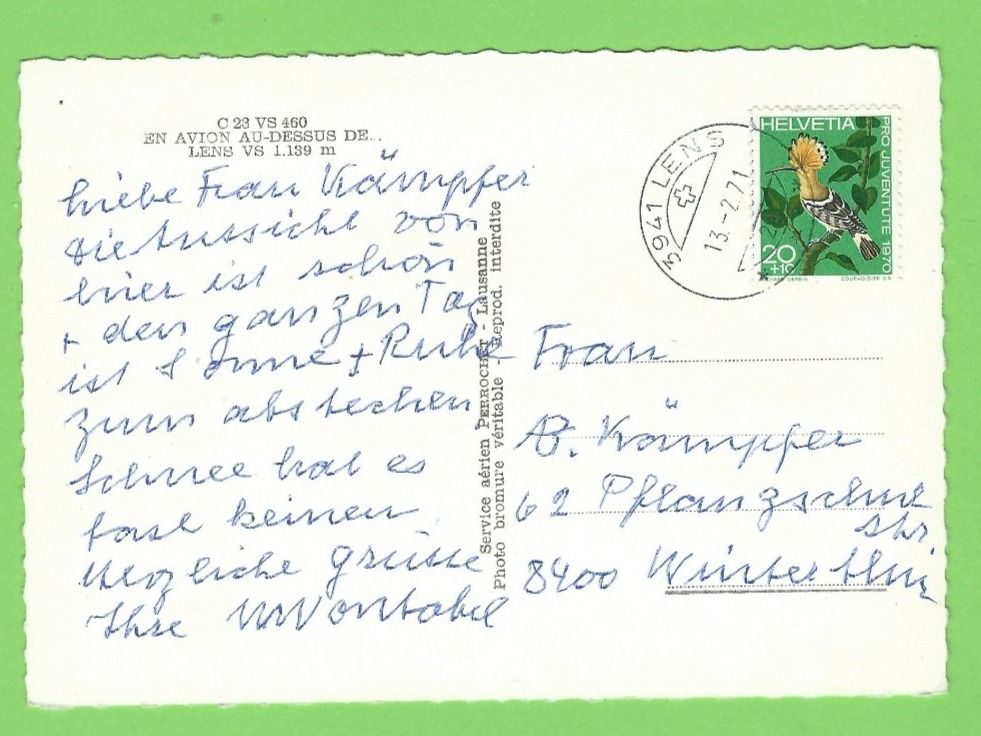 C 23 VS 460
EN AVION AU-DESSUS DE...
LENS VS 1.139 m
Liebe Frau Kämpfer
die Aussicht von
hier ist schön
+ den ganzen Tag
ist Sonne + Ruhe
zum abstechen
Schnee hat es
fast keinen
Herzliche Grüsse
Ihre Vontobel
Service aérien PERROCHET - Lausanne
Photo bromure véritable - Reprod. interdite
3941 LENS
13.-2.71
HELVETIA
PRO JUVENTUTE 1970
20
+10
COURVOISIER S.A.
Frau
B. Kämpfer
62 Pflanzschul
str.
8400 Winterthur